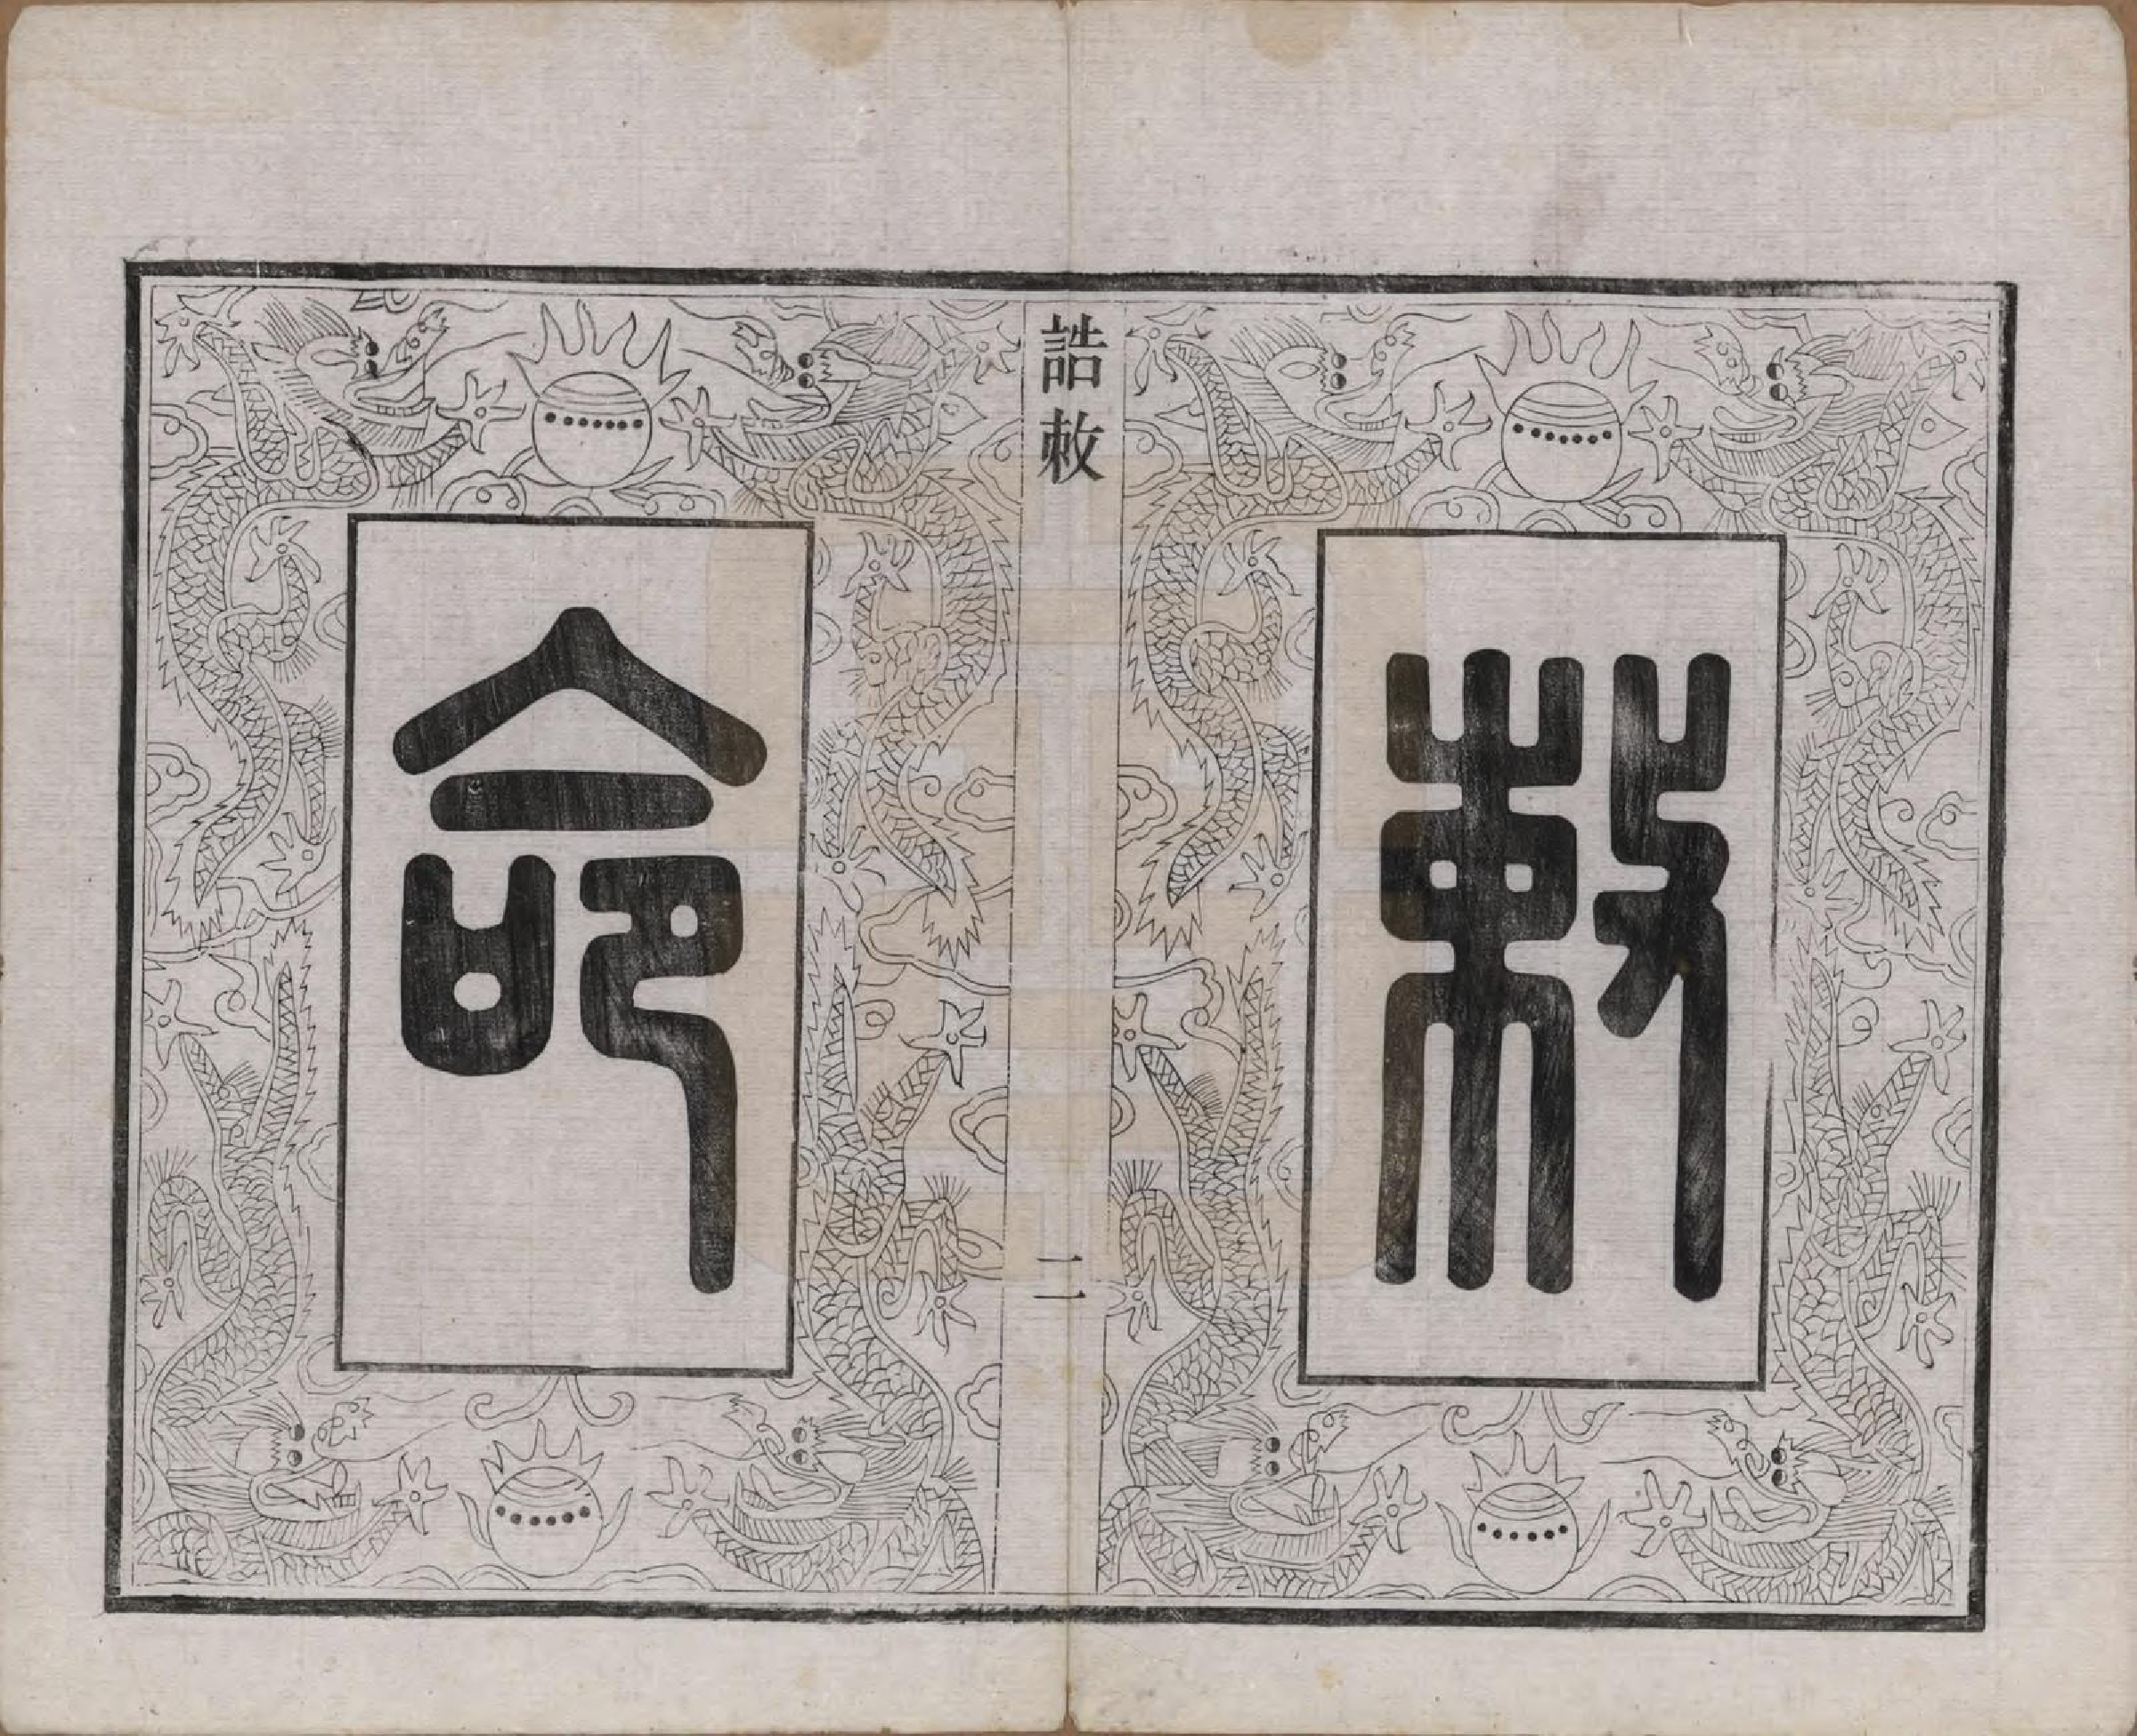 敕
誥敕
二
命